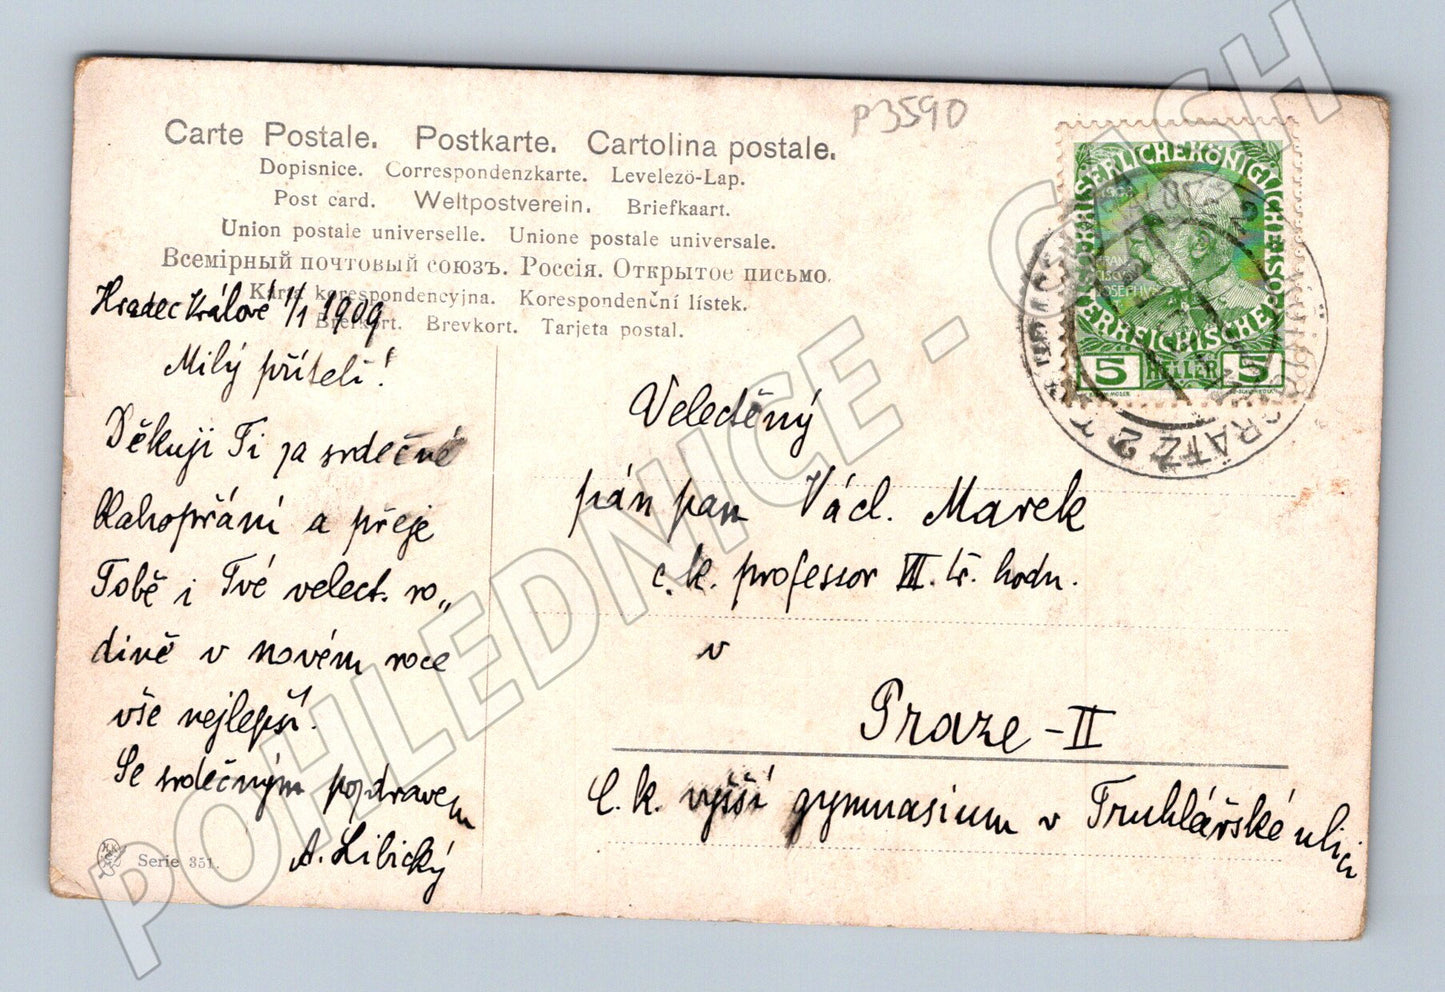 P3590
Carte Postale. Postkarte. Cartolina postale.
Dopisnice. Correspondenzkarte. Levelezö-Lap.
Post card. Weltpostverein. Briefkaart.
Union postale universelle. Unione postale universale.
Всемірный почтовый союзъ. Россія. Открытое письмо.
korespondencyjna. Korespondenční lístek.
Brefkort. Brevkort. Tarjeta postal.
Hradec Králové 1/1 1909
Milý příteli!
Děkuji Ti za srdečné
blahopřání a přeje
Tobě i Tvé velect. ro„
dině v novém roce
vše nejlepší.
Se srdečným pozdravem
A. Libický
Serie 351.
KAISERLICHE KÖNIGLICHE ÖSTERREICHISCHE
5 HELLER 5
GRÄTZ 2
Velectěný
pán pan Václ. Marek
c. k. professor VII. tř. hodn.
v
Praze - II
C. k. vyšší gymnasium v Truhlářské ulici
POHLEDNICE - CASH